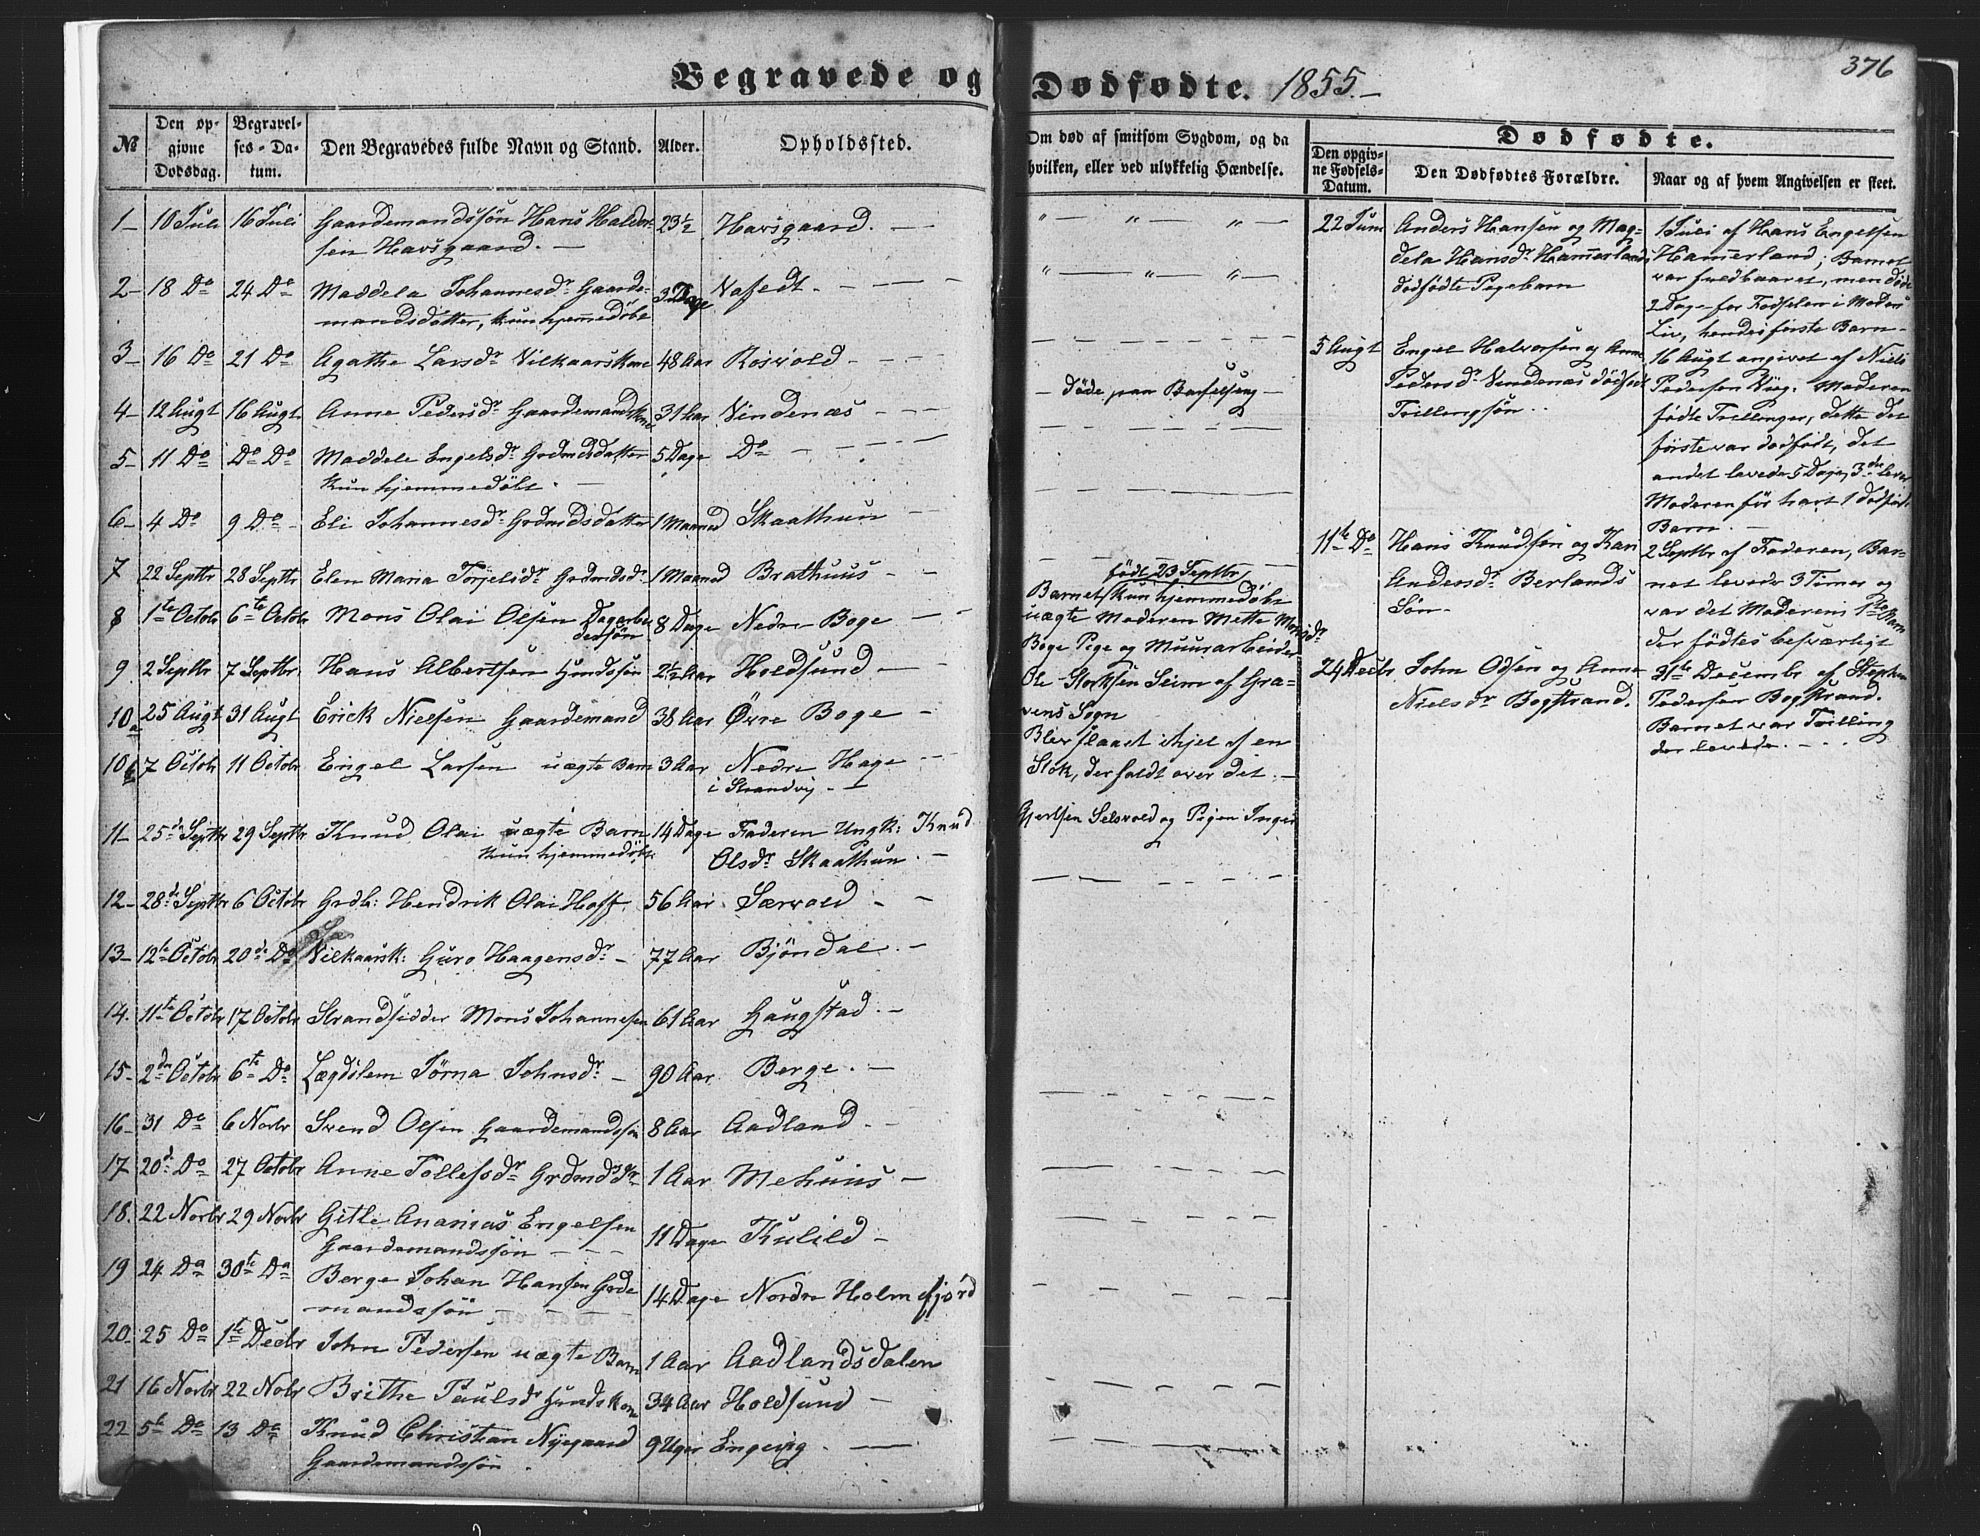 376
Begravede og Dødfødte. 1855.
№
Den opgivne Dødsdag.
Begravelses-Datum.
Den Begravedes fulde Navn og Stand.
Alder.
Opholdssted.
Om død af smitsom Sygdom, og da hvilken, eller ved ulykkelig Hændelse.
Dødfødte.
Den opgivne Fødsels-Datum.
Den Dødfødtes Forældre.
Naar og af hvem Angivelsen er skeet.
1 10 Juli 16 Juli Gaardemandssøn Hans Haldor- 23½ Havsgaard.
sen Havsgaard.
2 18 Do 24 Do Maddela Johannesdr Gaarde- 3 Dage
mandsdatter, kun hjemmedøbt
3 16 Do 21 Do Agathe Larsdr Vilkaarskone 48 Aar Rosvold
4 12 Augt 16 Augt Anne Pedersdr Gaardemandskone 31 Aar Vindenæs
5 11 Do Do Do Maddele Engelsdr Grdmdsdatter 5 Dage Do
kun hjemmedøbt
6 4 Do 9 Do Eli Johannesdr Grdmdsdatter 1 Maaned Skaathun
7 22 Septbr 28 Septbr Elen Maria Torjelsdr Grdmdsdr 1 Maaned Brathuus
8 1te Octobr 6te Octobr Mons Olai Olsen Dagarbei- 8 Dage Nedre Boge
dersøn
9 2 Septbr 7 Septbr Hans Albertsen Huusmdssøn 2½ Aar Holdsund
10a 25 Augt 31 Augt Erick Nielsen Gaardemand 38 Aar Øvre Boge
10b 7 Octobr 11 Octobr Engel Larsen uægte Barn 3 Aar Nedre Hage
i Strandvig
11 25de Septbr 29 Septbr Knud Olai uægte Barn 14 Dage Faderen Ungk: Knud
kun hjemmedøbt Olsdr Skaathun
12 28de Septbr 6 Octobr Grdb: Hendrik Olai Hoff 56 Aar Særvold
13 12te Octobr 20de Do Vilkaarsk: Guro Haagensdr 77 Aar Bjøndal
14. 11te Octobr 17 Octobr Strandsidder Mons Johannesen 61 Aar Haugstad
15 2den Octobr 6te Do Lægdslem Jørna Johnsdr 90 Aar Berge
16 31 Do 6 Novbr Svend Olsen Gaardemandssøn 8 Aar Aadland
17 20de Do 27 Octobr Anne Tollefsdr Grdmdsdr 1 Aar Mehuus
18. 22 Novbr 29 Novbr Gitle Ananias Engelsen 11 Dage Kulild
Gaardemandssøn
19 24 Do 30te Do Berge Johan Hansen Grde 14 Dage Nordre Holmefjord
mandssøn
20 25 Do 1te Decbr John Pedersen uægte Barn 1 Aar Aadlandsdalen
21 16 Novbr 22 Nobr Brithe Paulsdr Huusmdskone 34 Aar Holdsund
22 5te Do 13 Do Knud Christian Nygaard 9 Uger Engevig
Gaardemandssøn
døde paa Barselseng
født 23 Septbr
Barnet kun hjemmedøbt
uægte Moderen Mette Monsdr
Boge Pige og Muurarbeider
Ole Storksen Seim af Gra-
vens Sogn
Blev slaaet ihjel af en
Stok, der faldt over det.
Gjertsen Selsvold og Pigen Inger
22 Juni Anders Hansen og Mag-
dela Hansdr Hammerlands
dødfødte Pigebarn
1 Juli af Hans Engelsen
Hammerland; Barnet
var fuldbaaret, men døde
2 Dage før Fødselen i Moders
Liv, hendes første Barn
5 Augt Engel Halvorsen og Anne
Pedersdr Vindenæs dødfødt
Trillingsøn
16 Augt angivet af Niels
Pedersen Moderen
fødte Trillinger, dette det
første var dødfødt, det
andet levede 5 Dage, 3die lever
Moderen før havt 1 dødfødt
Barn.
11te Do Hans Knudsen og Kari
Andersdr Berlands
Søn
2 Septbr af Faderen, Bar-
net levede 3 Timer og
var det Moderens 1ste Barn
der fødtes besværligt
24 Decbr John Odsen og Anne
Nielsdr Bogstrand.
31te Decembr af Stephen
Pedersen Bogstrand.
Barnet var Tvilling
der levede.